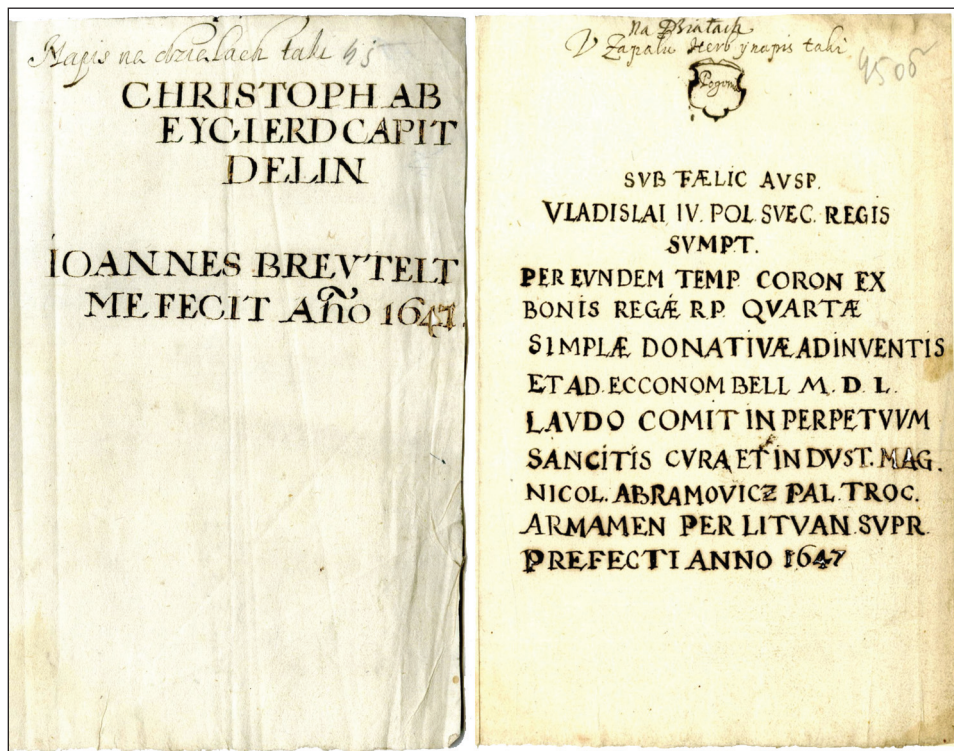 Napis na dzialach taki 45
CHRISTOPH AB
EYGIERD CAPIT
DELIN
IOANNES BREVTELT
ME FECIT Año 1647.
Na Dzialach
V Zapalu Herb ynapis taki
4506
Pogon
SVB FÆLIC AVSP.
VLADISLAI IV. POL SVEC. REGIS
SVMPT.
PER EVNDEM TEMP CORON EX
BONIS REGÆ R P. QVARTÆ
SIMPLÆ DONATIVÆ ADINVENTIS
ET AD ECCONOM BELL M. D. L.
LAVDO COMIT IN PERPETVVM
SANCITIS CVRA ET INDVST. MAG.
NICOL. ABRAMOVICZ PAL TROC.
ARMAMEN PER LITVAN SVPR.
PREFECTI ANNO 1647